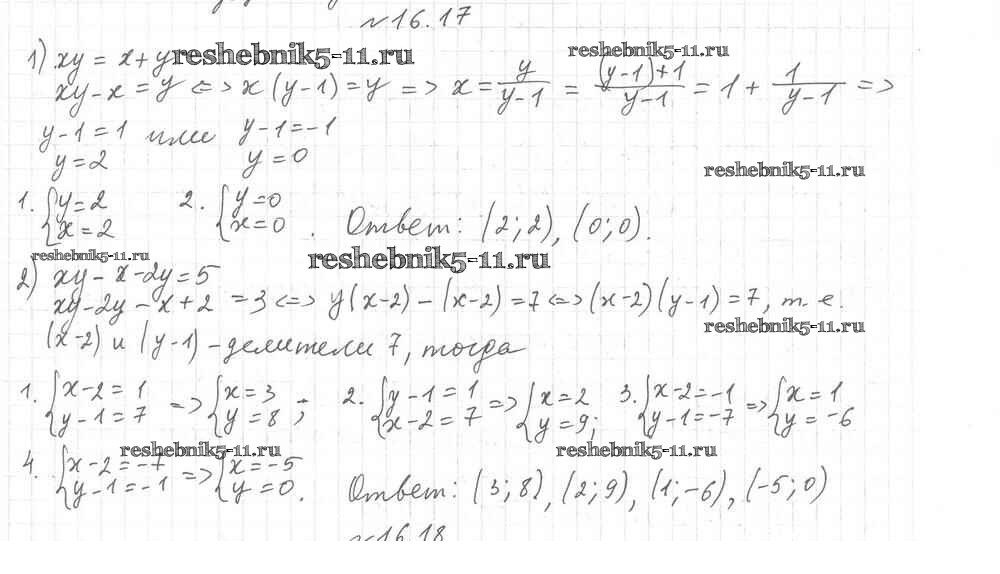 №16.17
1) xy = x+y reshebnik5-11.ru reshebnik5-11.ru
xy-x = y <=> x(y-1)=y => x = y/(y-1) = ((y-1)+1)/(y-1) = 1 + 1/(y-1) =>
y-1=1 или y-1=-1
y=2 y=0
reshebnik5-11.ru
1. {y=2 x=2 2. {y=0 x=0 . Ответ: (2;2), (0;0).
reshebnik5-11.ru reshebnik5-11.ru
2) xy-x-2y=5
xy-2y-x+2 =3 <=> y(x-2)-(x-2)=7 <=> (x-2)(y-1)=7, т.е.
reshebnik5-11.ru
(x-2) и (y-1) - делители 7, тогда
1. {x-2=1 y-1=7 => {x=3 y=8 ; 2. {y-1=1 x-2=7 => {x=2 y=9; 3. {x-2=-1 y-1=-7 => {x=1 y=-6
reshebnik5-11.ru reshebnik5-11.ru
4. {x-2=-7 y-1=-1 => {x=-5 y=0. Ответ: (3;8), (2;9), (1;-6), (-5;0)
№16.18